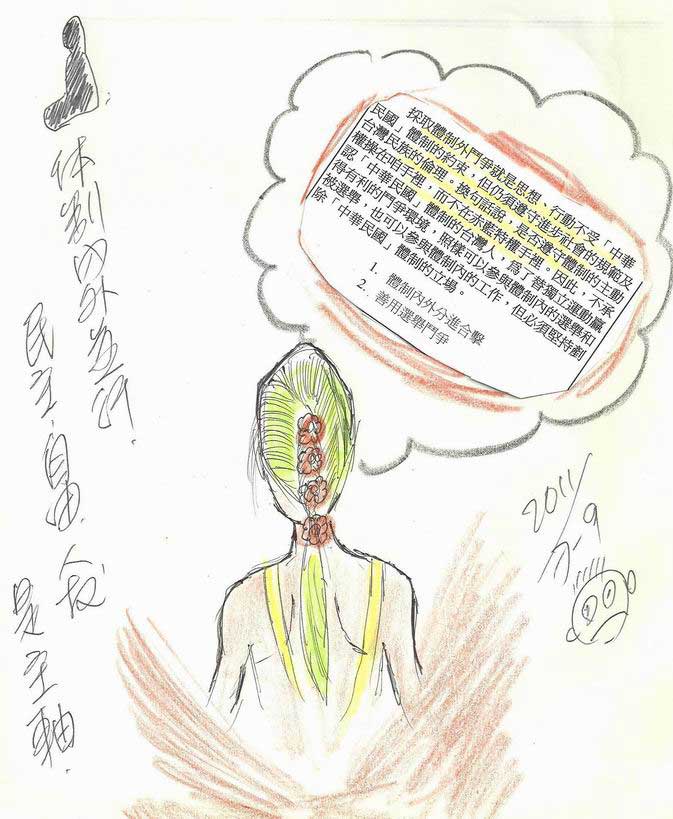 採取體制外鬥爭就是思想、行動不受「中華
民國」體制的約束，但仍須遵守進步社會的規範及
台灣民族的倫理。換句話說，是否遵守體制的主動
權操在咱手裡，而不在赤藍特權手裡。因此，不承
認「中華民國」體制的台灣人，為了替獨立運動贏
得有利的鬥爭環境，照樣可以參與體制內的選舉和
被選舉，也可以參與體制內的工作，但必須堅持剷
除「中華民國」體制的立場。
1. 體制內外分進合擊
2. 善用選舉鬥爭
体制內外並行.
民主.自由.人权
是主軸.
2011/7-9